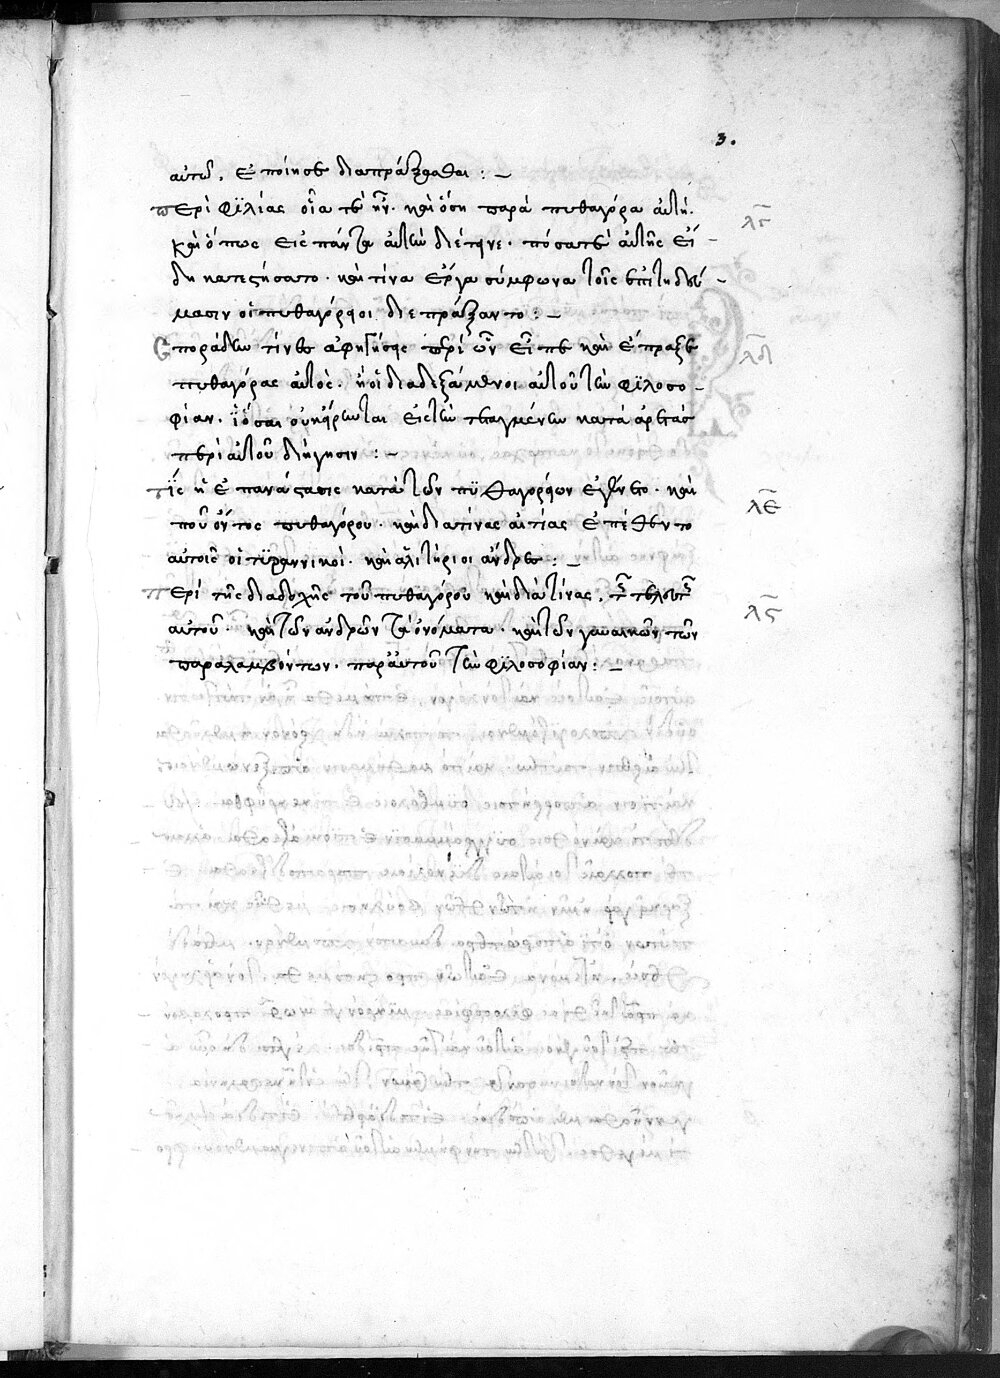 3.
αὐτῶ, ἐποίησε διαπράξασθαι : –
περὶ φϊλίας οἵα τὲ ἦν. καὶ ὅση παρὰ πυθαγόρα αὐτή. λγ
καὶ ὅπως εἰς πάντα αὐτὴν διέτεινε. πόσα τὲ αὐτῆς εἴ-
δη κατεστήσατο. καὶ τίνα ἔργα σύμφωνα τοῖς ἐπιτηδεύ-
μασιν οἱ πυθαγόρειοι διεπράξαντο : –
Σποράδην τίνες ἀφηγήσεις περὶ ὧν εἶπε καὶ ἔπραξε λδ
πυθαγόρας αὐτὸς. ἢ οἱ διαδεξάμενοι αὐτοῦ τὴν φϊλοσο-
φίαν. ὅσαι οὐκ εἴρωνται εἰς τὴν τεταγμένην κατὰ ἀρετὰς
περὶ αὐτοῦ διήγησιν : –
Τίς ἡ ἐπανάστασις κατὰ τῶν πϋθαγορείων ἐγένετο. καὶ λε
ποῦ ὄντος πυθαγόρου. καὶ διατίνας αἰτίας ἐπέθεντο
αὐτοῖς οἱ τϋραννικοὶ. καὶ ἀλιτήριοι ἄνδρες : –
Περὶ τῆς διαδοχῆς τοῦ πυθαγόρου καὶ διὰ τίνας, τὴν τελευτὴν λς
αὐτοῦ. καὶ τῶν ἀνδρῶν τὰ ὀνόματα. καὶ τῶν γυναικῶν τῶν
παραλαμβόντων. παρ' αὐτοῦ τὴν φϊλοσοφίαν : –